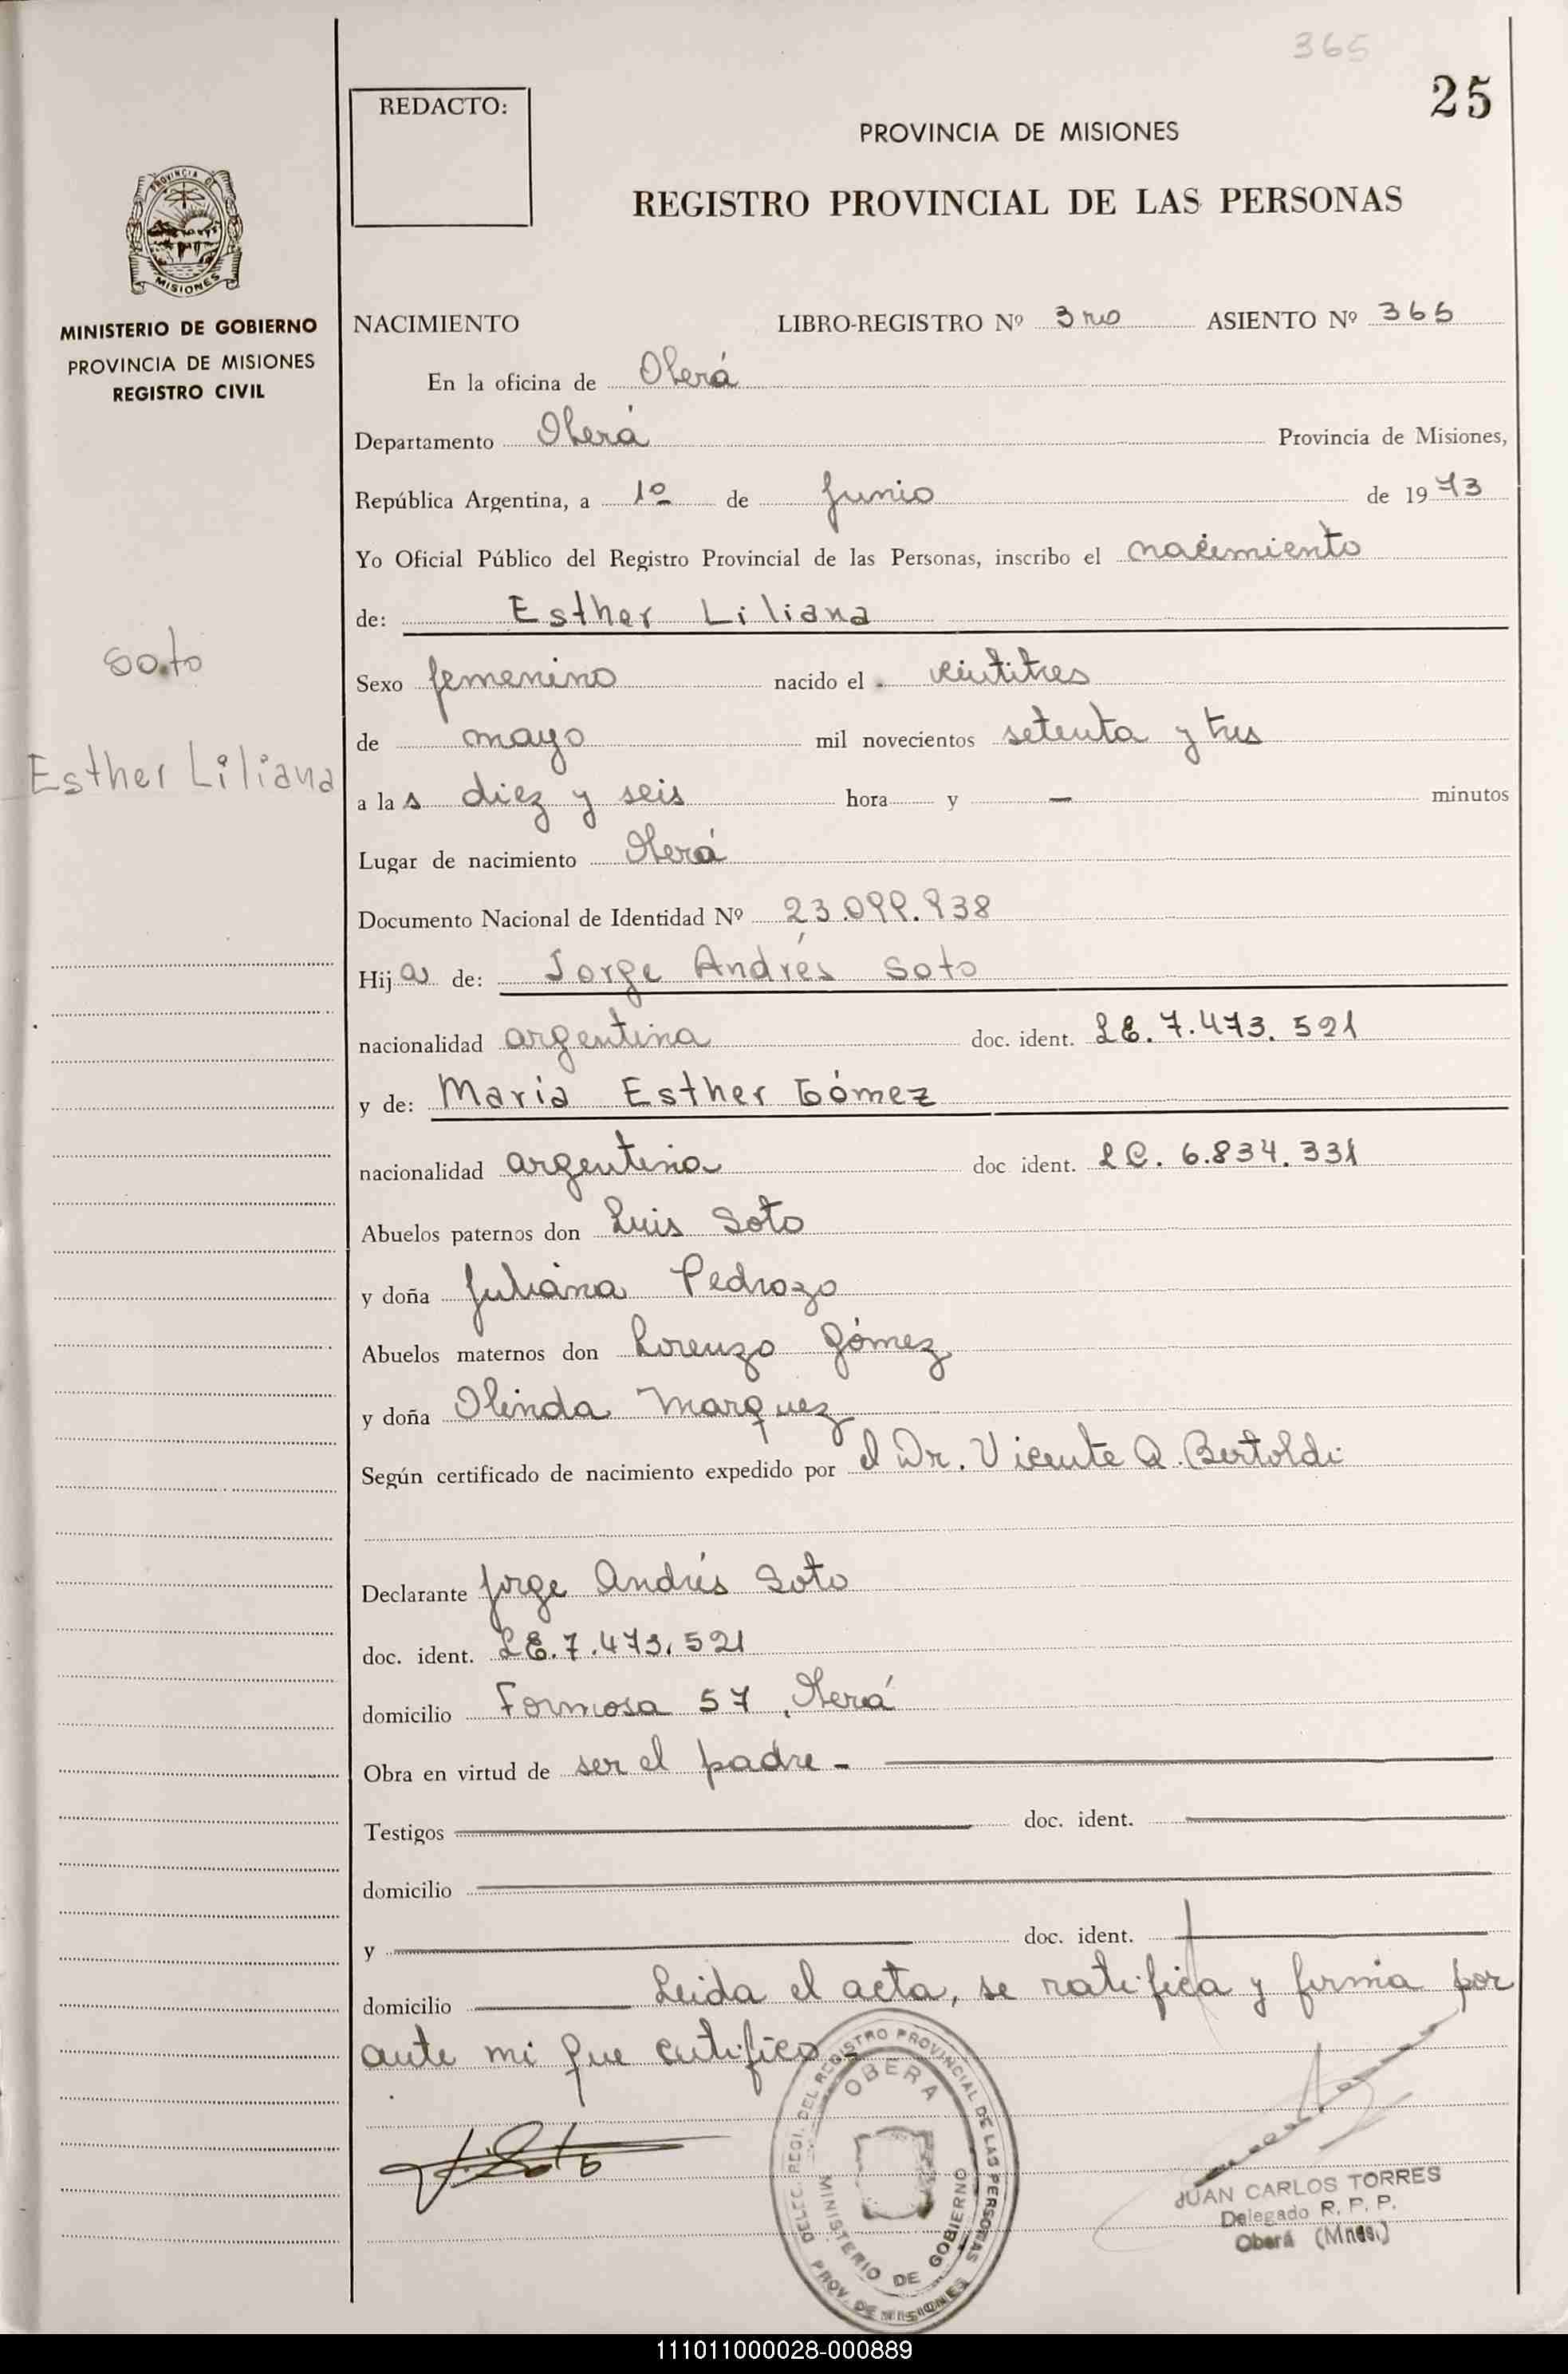 365
25
REDACTO:
PROVINCIA DE MISIONES
REGISTRO PROVINCIAL DE LAS PERSONAS
PROVINCIA DE
MISIONES
MINISTERIO DE GOBIERNO
PROVINCIA DE MISIONES
REGISTRO CIVIL
NACIMIENTO LIBRO-REGISTRO Nº 3ro ASIENTO Nº 365
En la oficina de Oberá
Departamento Oberá Provincia de Misiones,
República Argentina, a 1º de Junio de 1973
Yo Oficial Público del Registro Provincial de las Personas, inscribo el nacimiento
de: Esther Liliana
Soto
Esther Liliana
Sexo femenino nacido el veintitres
de mayo mil novecientos setenta y tres
a las diez y seis hora y — minutos
Lugar de nacimiento Oberá
Documento Nacional de Identidad Nº 23.099.938
Hija de: Jorge Andrés Soto
nacionalidad argentina doc. ident. LE. 7.473.521
y de: Maria Esther Gómez
nacionalidad argentina doc ident. LC. 6.834.331
Abuelos paternos don Luis Soto
y doña Juliana Pedrozo
Abuelos maternos don Lorenzo Gómez
y doña Olinda Marquez
Según certificado de nacimiento expedido por el Dr. Vicente A. Bertoldi
Declarante Jorge Andrés Soto
doc. ident. LE. 7.473.521
domicilio Formosa 57, Oberá
Obra en virtud de ser el padre -
Testigos doc. ident.
domicilio
y doc. ident.
domicilio Leida el acta, se ratifica y firma por
ante mi que certifico -
J. Soto
DELEC. REGI. DEL REGISTRO PROVINCIAL DE LAS PERSONAS
OBERA
MINISTERIO DE GOBIERNO
PROV. DE MISIONES
JUAN CARLOS TORRES
Delegado R. P. P.
Oberá (Mnes.)
111011000028-000889